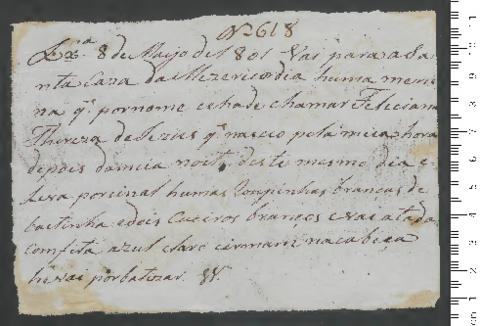 N 618
Lxª. 8 de Mayo de 1801 Vai para a Sa
nta Caza da Mizericordia huma meni
na q̃ por nome se hade chamar Feliciana
Thereza de Jezus q̃ nasceo pela meia hora
depois da meia noite deste mesmo dia e
leva por sinal humas Roupinhas brancas de
baetinha e dois Coeiros brancos e vai atada
com fita azul claro e na cabeça
he vai por batizar